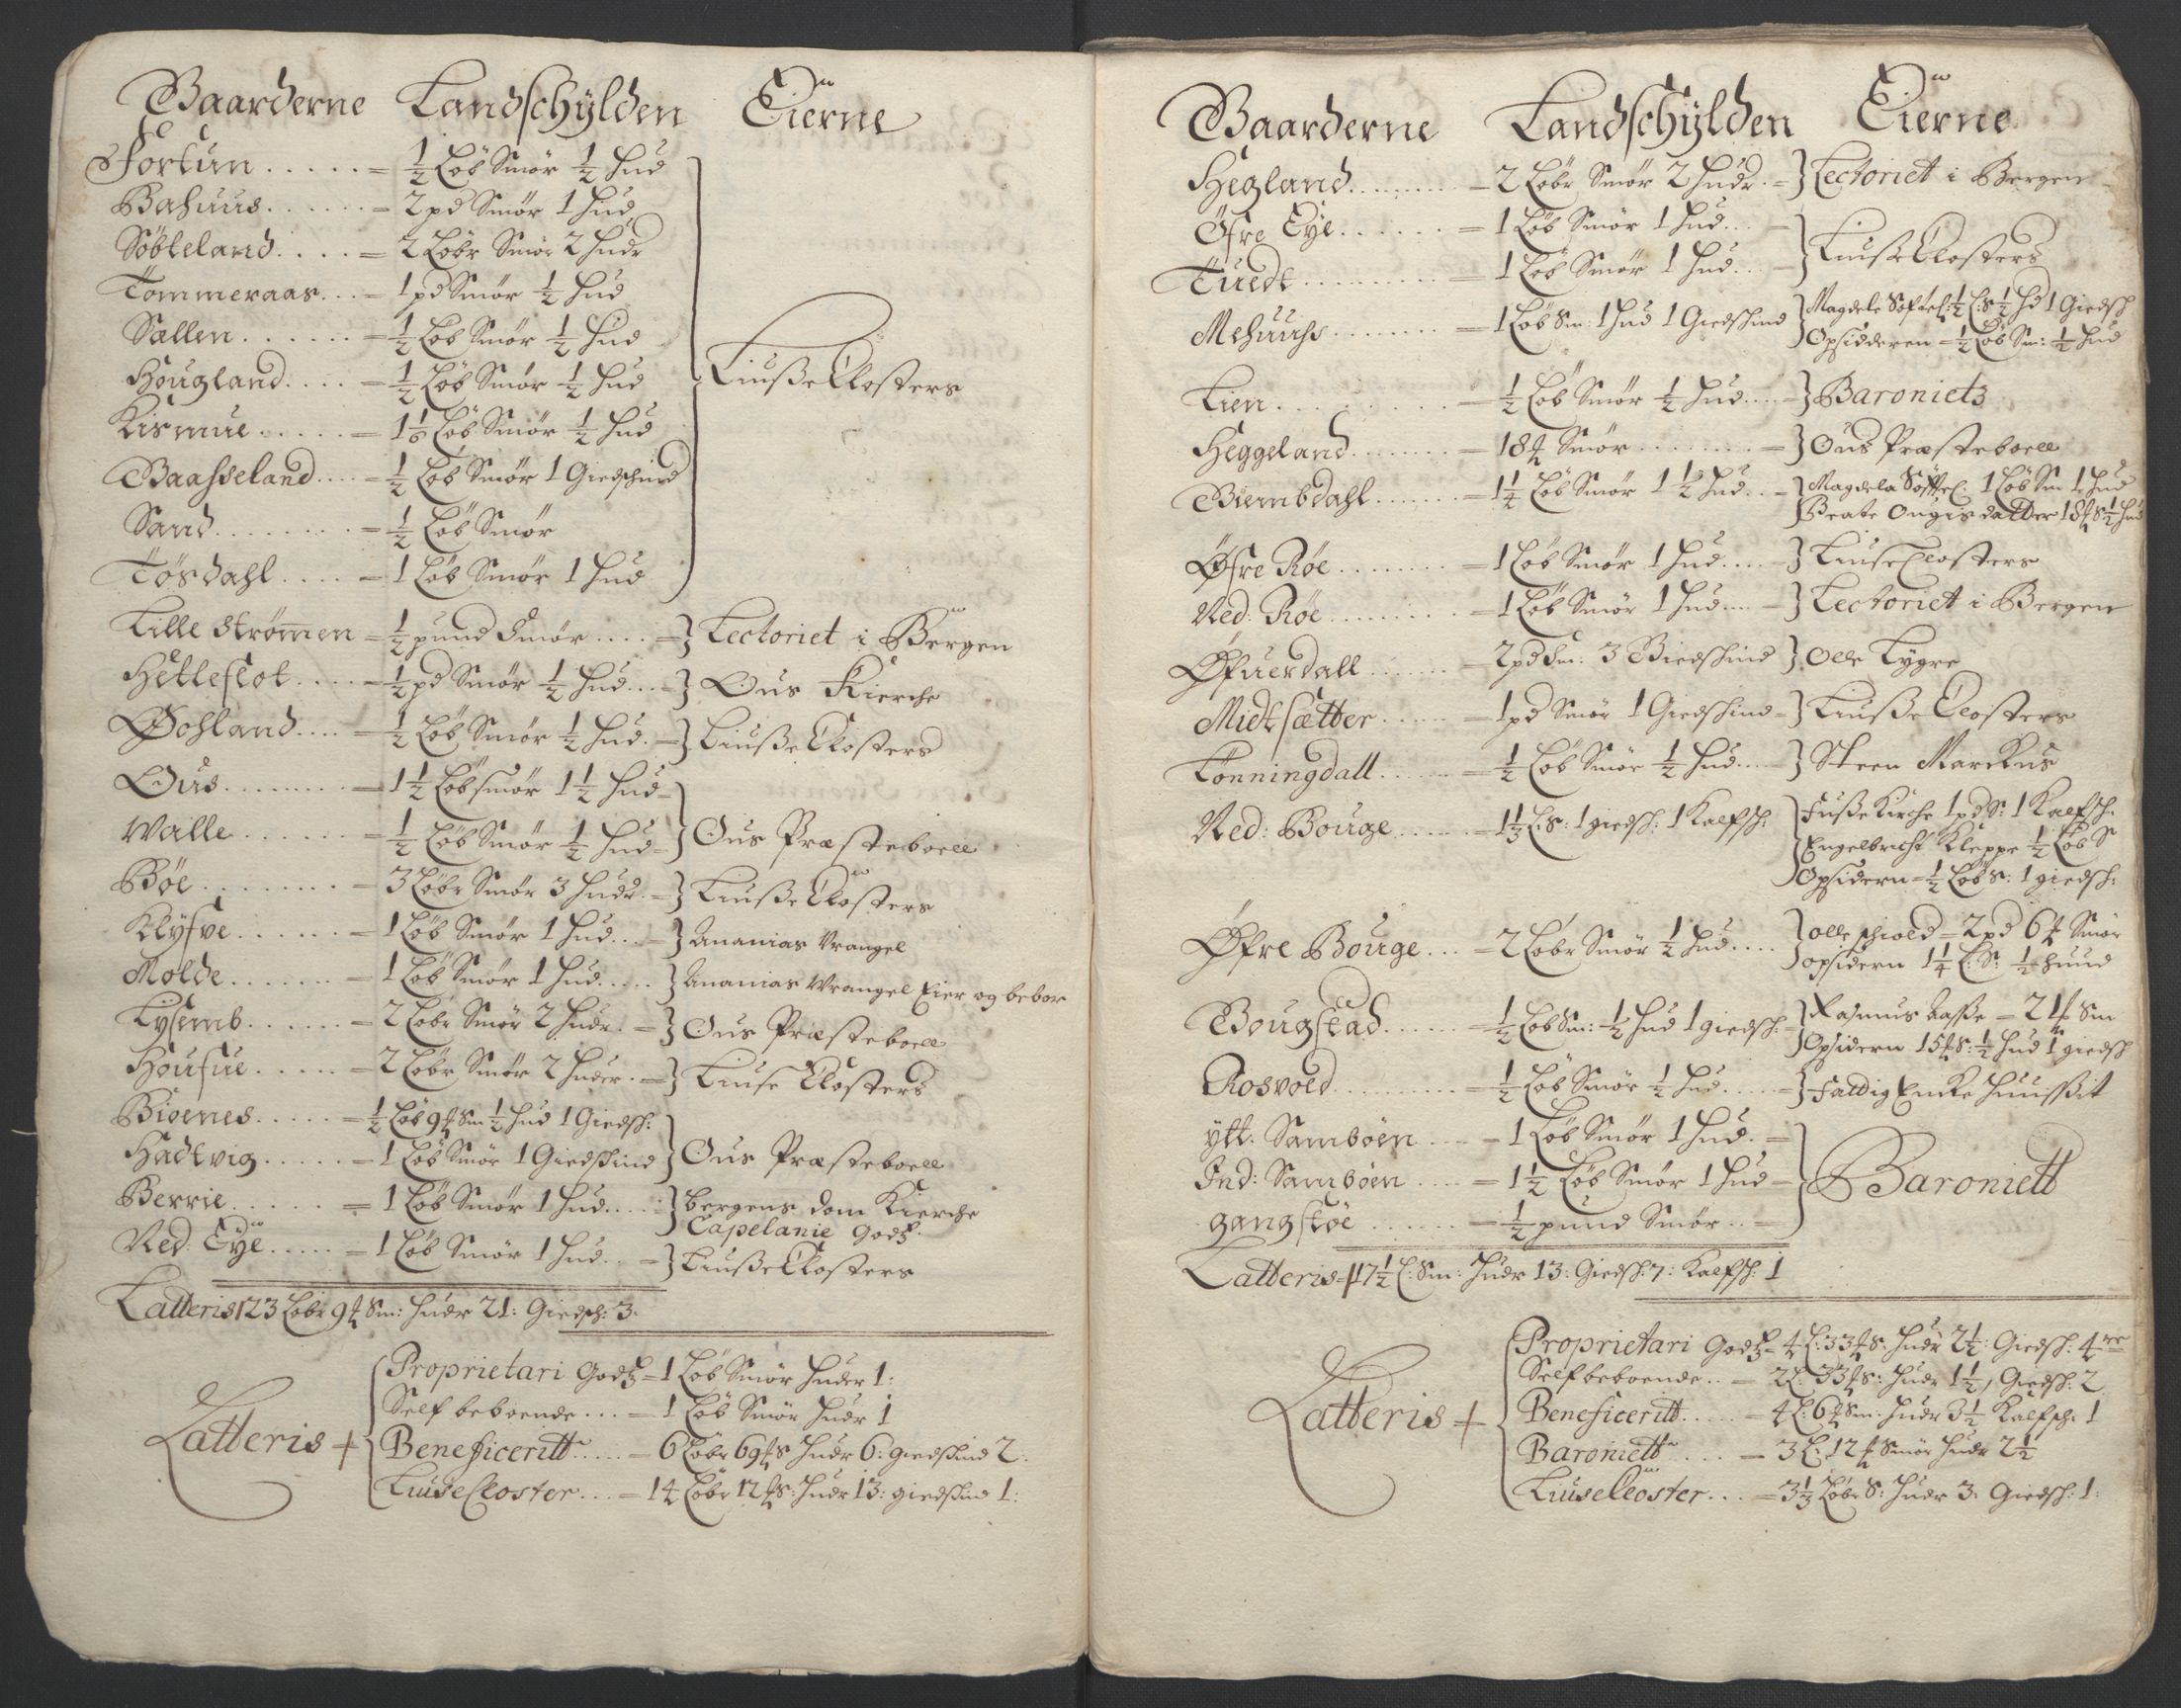 Gaarderne Landschÿlden Eierne
Fortun ..... = ½ Løb Smør ½ Hud
Bahuus ...... = 2 pd Smør 1 Hud
Søbteland .... = 2 Løbr Smør 2 Hudr
Tømmeraas ... = 1 pd Smør ½ Hud
Sællen ...... = ½ Løb Smør ½ Hud
Hougland .... = ½ Løb Smør ½ Hud } Liusße Closters
Kismue ..... = 1⅙ Løb Smør ½ Hud
Baahseland .... = ½ Løb Smør 1 Giedschind
Sand ........ = ½ Løb Smør
Tøsdahl .... = 1 Løb Smør 1 Hud
Lille Strømen = ½ pund Smør .... = } Lectoriet i Bergen
Hetleflot .... = ½ pd Smør ½ Hud ... = } Ous Kierche
Gohland .... = ½ Løb Smør ½ Hud . = } Liusße Closters
Ous ........ = 1½ Løb smør 1½ Hud =
Walle ...... = ½ Løb Smør ½ Hud = } Ous Præsteboell
Bøe ........ = 3 Løbr Smør 3 Hudr . = } Liusße Closters
Klyfve ...... = 1 Løb Smør 1 Hud ... = } Ananias Vrangel
Molde ....... = 1 Løb Smør 1 Hud ..... } Ananias Wrangel Eier og bebor
Lysemb ...... = 2 Løbr Smør 2 Hudr . = } Ous Præsteboell
Houfue ..... = 2 Løbr Smør 2 Huder . = } Liuse Closters
Bioenes ..... = ½ Løb 9 ℔ Sm ½ Hud 1 Giedsch:
Hadtvig ..... = 1 Løb Smør 1 Giedschind } Ous Præsteboell
Berrie ..... = 1 Løb Smør 1 Hud .... } Bergens dom Kierche
Capelanie Godß
Ned: Eÿe ..... = 1 Løb Smør 1 Hud .. = } Liusße Closters
Latteris 123 Løbr 9 ℔ Sm: Hudr 21: Giedsch: 3.
Proprietari Godß = 1 Løb Smør Huder 1:
Self beboende ... = 1 Løb Smør Hudr 1
Latteris + { Beneficeritt ..... = 6 Løbr 69 ℔ S Hudr 6: giedschind 2.
Liuse Closter ... = 14 Løbr 12 ℔ S: Hudr 13: giedschind 1:
Gaarderne Landschÿlden Eierne
Hegland ........ = 2 Løbr Smør 2 Hudr . = } Lectoriet i Bergen
Øfre Eÿe ...... = 1 Løb Smør 1 Hud ... =
Tuedt ......... = 1 Løb Smør 1 Hud .. = } Liusße Closters
Mehuuhs ....... = 1 Løb Sm: 1 Hud 1 Giedschind } Magdele Søftel: ½ L: S ½ Hd 1 Giedsch
Opsidderen = ½ Løb Sm: ½ Hud
Lien ......... = ½ Løb Smør ½ Hud .... = } Baronietz
Heggeland ....... = 18 ℔ Smør ........ = } Ous Præsteboell
Biembdahl ...... = 1¼ Løb Smør 1½ Hud .. = } Magdela Søfftel: 1 Løb Sm 1 Hud
Beate Ougis datter 18 ℔ S ½ Hud
Øfre Røe ........ = 1 Løb Smør 1 Hud .... } Liuse Closters
Ned: Røe ........ = 1 Løb Smør 1 Hud .... = } Lectoriet i Bergen
Øfuerdall ...... = 2 pd Sm: 3 Giedschind } Olle Tygre
Midtsætter ..... = 1 pd Smør 1 Giedschind = } Liusße Closters
Tønningdall ..... = ½ Løb Smør ½ Hud .... } Steen Marckus
Ned: Bouge ..... = 1⅓ L: S: 1 giedsch: 1 Kalfsch: } Fusße Kirche 1 pd S: 1 Kalfsch:
Engelbricht Kleppe ½ Løb S
Opsidern = ½ Løb S: 1 giedsch:
Øfre Bouge ... = 2 Løbr Smør ½ Hud .... } Olle schiold = 2 pd 6 ℔ Smør
opsidern 1¼ L: S: ½ Huud
Bougstad ...... = ½ Løb Sm: ½ Hud 1 giedsch: = } Rasmus Aasße = 21 ℔ Sm
Opsidern 15 ℔ S: ½ Hud 1 giedsch
Rosvold ......... = ½ Løb Smør ½ Hud ..... = } Fattig Encke Huusßit
ytt: Sambøen .... = 1 Løb Smør 1 Hud . =
Ind: Sambøen .... = 1½ Løb Smør 1 Hud = } Baroniett
gangstøe ...... = ½ pund Smør .. =
Latteris = 17½ L: Sm: Hudr 13: Giedsch: 7: Kalfsch: 1
Proprietari Godß = 4 L: 33 ℔ S: Hudr 2½: Giedsch: 4
Self beboende .. = 2 L: 33 ℔ S: Hudr 1½, Giedsch: 2
Latteris + { Beneficeritt ..... = 4 L: 6 ℔ Sm: Hudr 3½ Kalfsch: 1
Baroniett .... = 3 L: 12 ℔ Smør Hudr 2½
Liuse Closter ... = 3⅓ Løbr S: Hudr 3: Giedsch: 1: